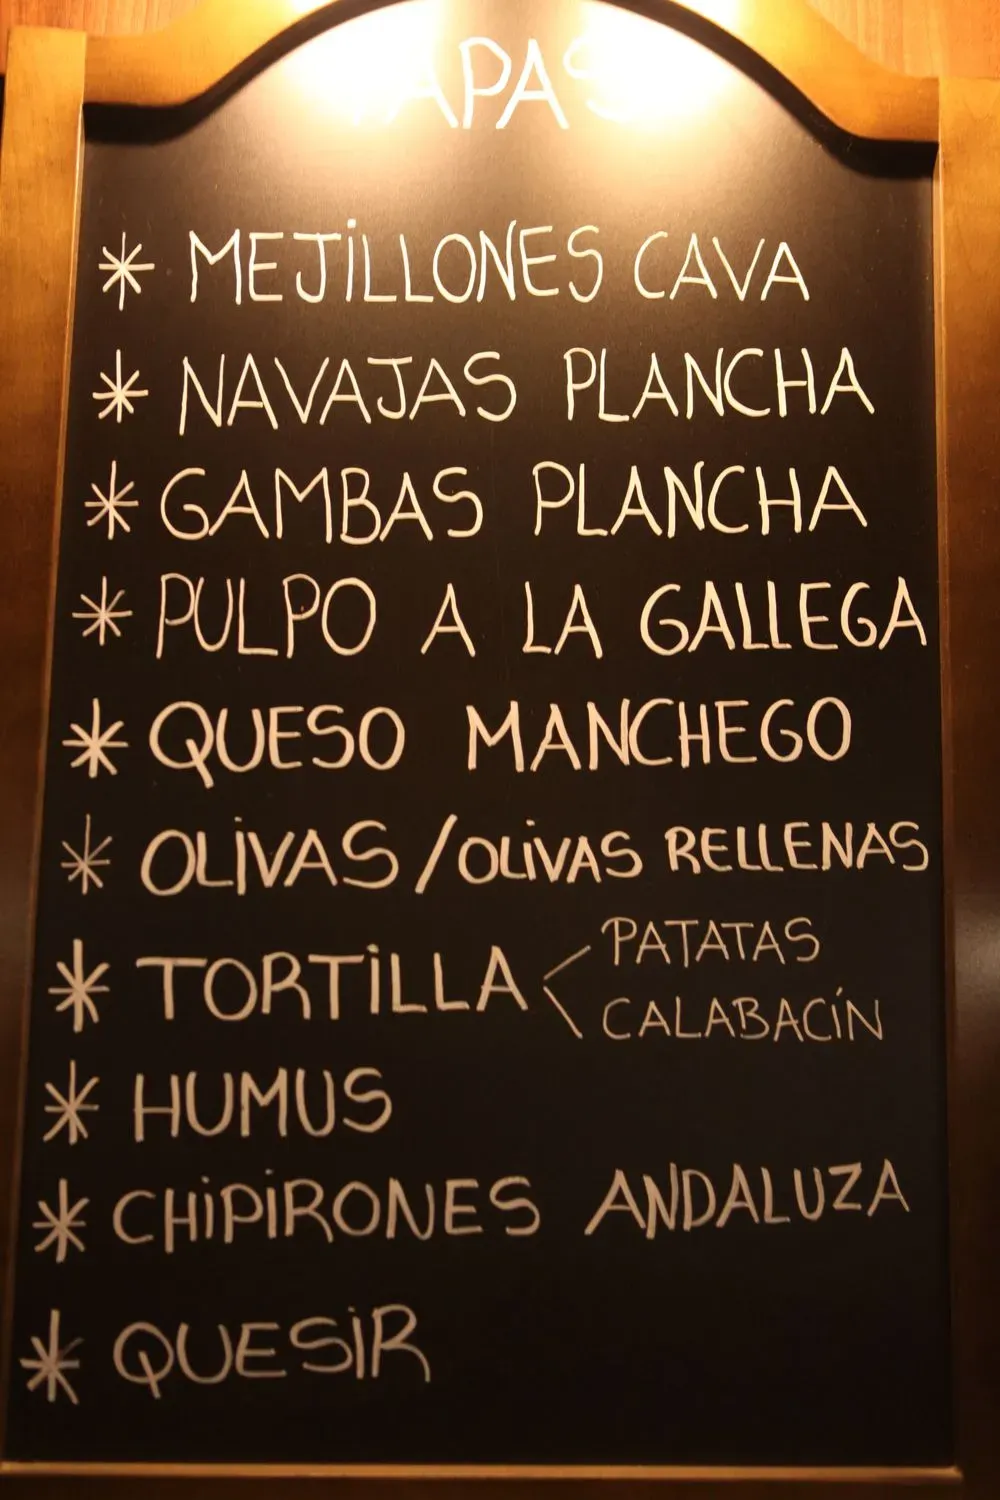 TAPAS
* MEJILLONES CAVA
* NAVAJAS PLANCHA
* GAMBAS PLANCHA
* PULPO A LA GALLEGA
* QUESO MANCHEGO
* OLIVAS / OLIVAS RELLENAS
* TORTILLA < PATATAS
CALABACÍN
* HUMUS
* CHIPIRONES ANDALUZA
* QUESIR